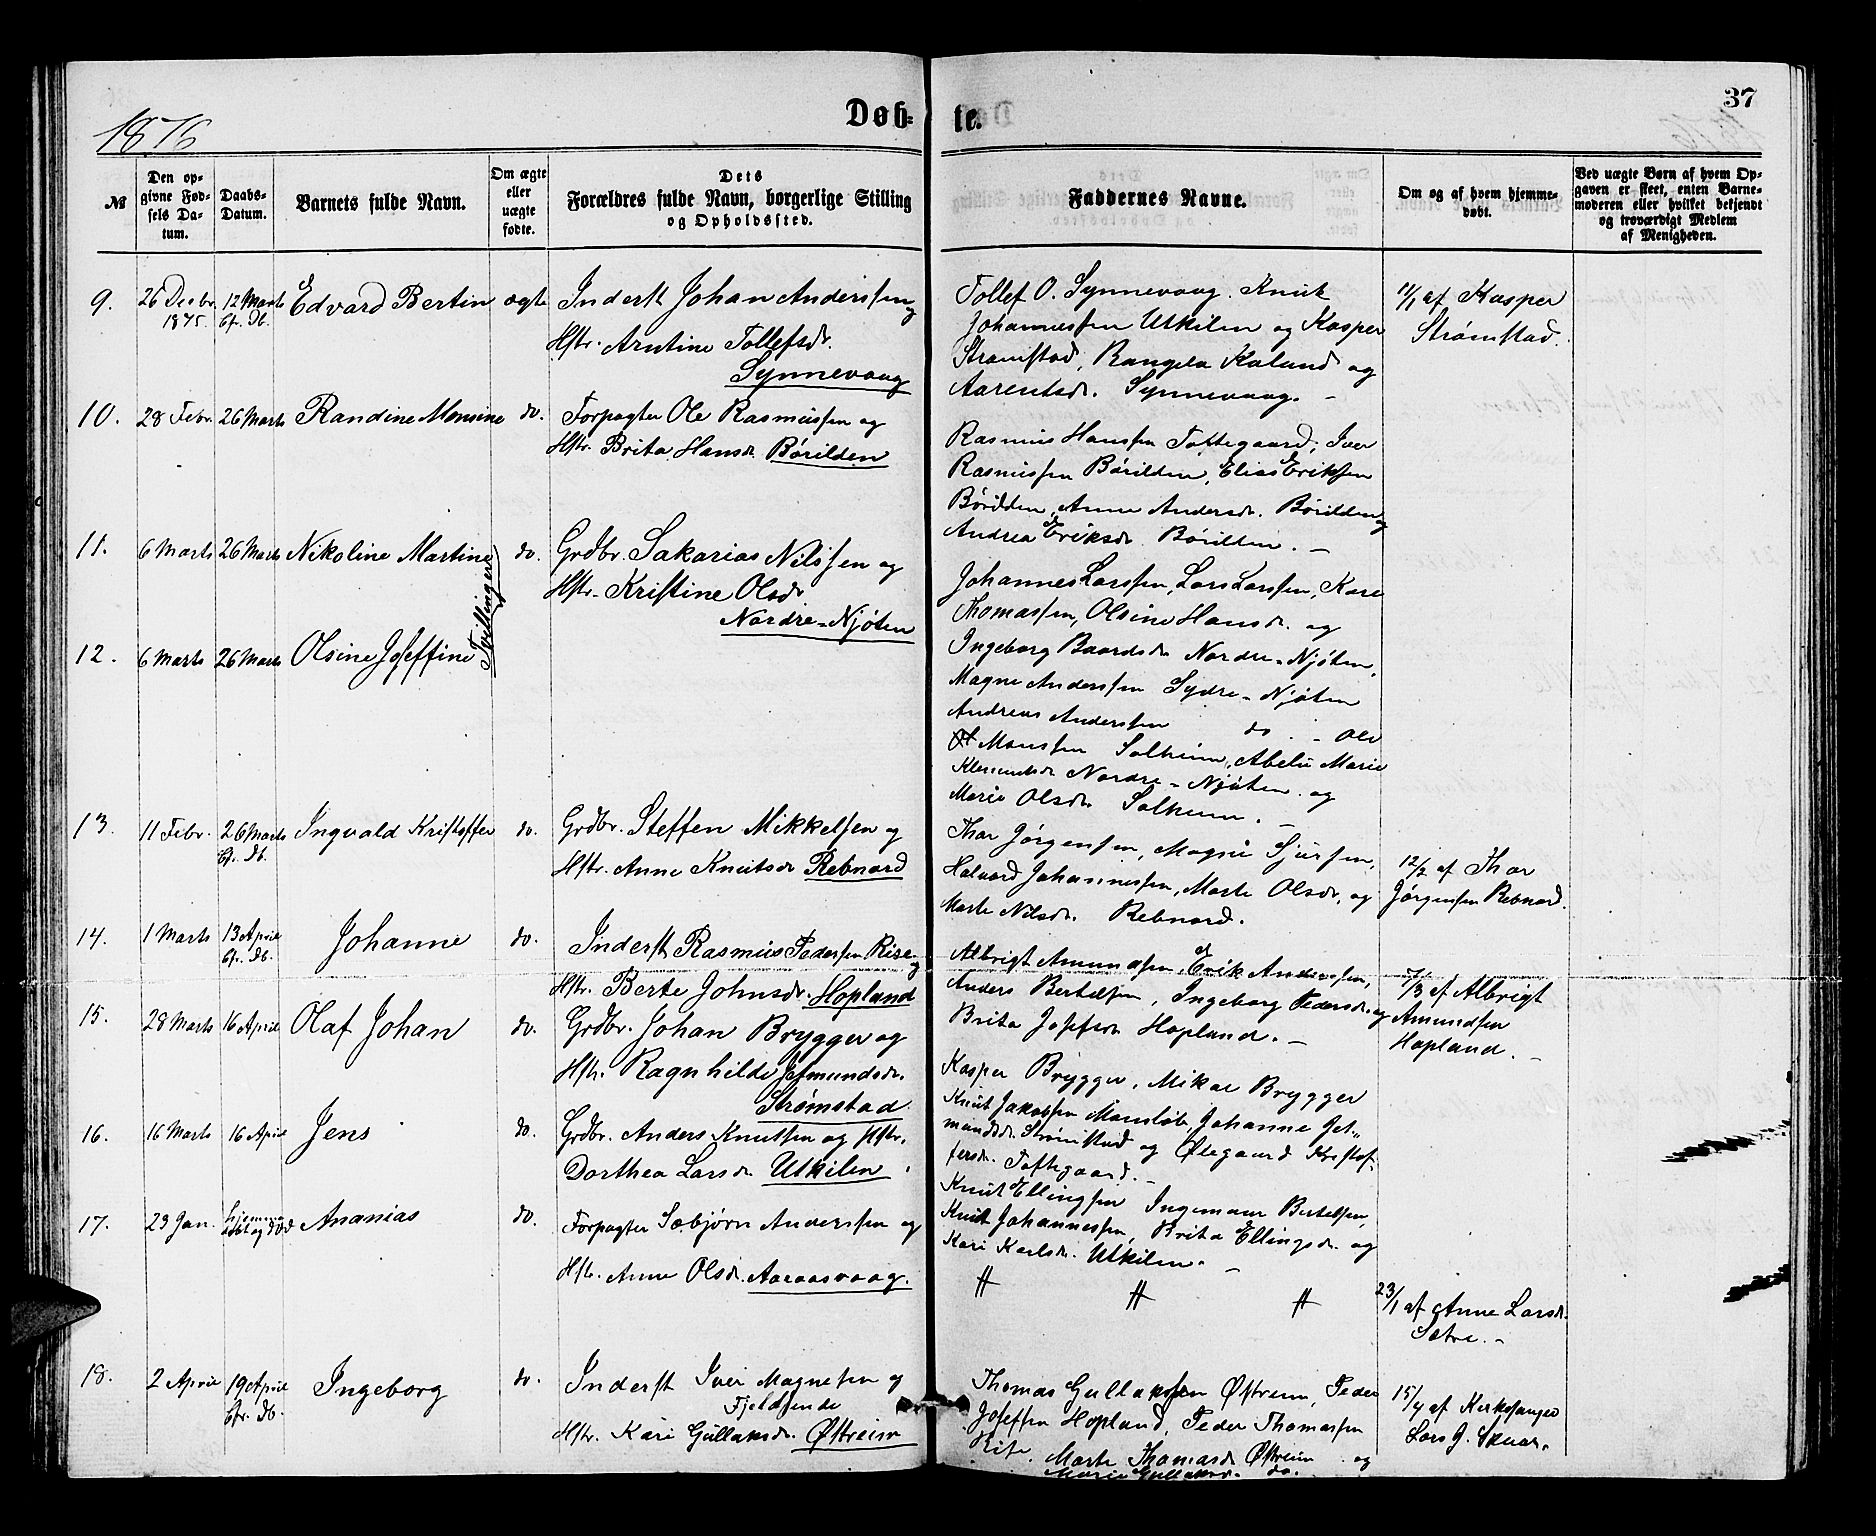 1876
Døb-
te.
37
№
Den op-
givne Fød-
sels Da-
tum.
Daabs-
Datum.
Barnets fulde Navn.
Om ægte
eller
uægte
fødte.
Dets
Forældres fulde Navn, borgerlige Stilling
og Opholdssted.
Faddernes Navne.
Om og af hvem hjemme-
døbt.
Ved uægte Børn af hvem Op-
gaven er skeet, enten Barne-
moderen eller hvilket bekjendt
og troværdigt Medlem
af Menigheden.
9. 26 Decbr. 1875. 12 Marts bf. Db. Edvard Bertin ægte
Inderst Johan Anderssen og
Hstr. Arntine Tollefsdr.
Synnevaag
Tollef O. Synnevaag. Knut
Johannessen Utkilen og Kasper
Strømstad, Rangela Kaland og
Aarentsdr. Synnevaag. –
11/1 af Kasper
Strømstad.
10. 28 Febr. 26 Marts Randine Monsine do.
Forpagter Ole Rasmussen og
Hstr. Brita Hansdr. Børilden
Rasmus Hanssen Toftegaard, Iver
Rasmussen Børilden, Elias Eriksen
Børilden, Anne Andersdr. Børilden og
Andrea Eriksdr. Børilden. –
11. 6 Marts 26 Marts Nikoline Martine do.
Tvillinger
Grdbr. Sakarias Nilssen og
Hstr. Kristine Olsdr
Nordre-Njøten
Johannes Larssen, Lars Larssen, Kare
Thomassen, Olsine Hansdr. og
Ingeborg Baardsdr Nordre-Njøten,
12. 6 Marts 26 Marts Olsine Joseffine
Magne Anderssen Sydre-Njøten
Andreas Anderssen do. - Ole
Monssen Solheim, Abelu Marie
Klementsdr Nordre-Njøten og
Marie Olsdr. Solheim. –
13. 11 Febr. 26 Marts bf. Db. Ingvald Kristoffer do.
Grdbr. Steffen Mikkelsen og
Hstr. Anne Knutsdr Rebnord
Thor Jørgensen, Mogns Sjurssen,
Halvard Johannessen, Marte Olsdr, og
Marte Nilsdr. Rebnord.
12/2 af Thor
Jørgensen Rebnord.
14. 1 Marts 13 April bf. Db. Johanne do.
Inderst Rasmus Pederssen Rise og
Hstr. Berte Johnsdr. Hopland
Albrigt Amundsen, Erik Anderssen,
Anders Bertelsen, Ingeborg Pedersdr. og
Brita Josefsdr Hopland. –
5/3 af Albrigt
Amundsen
Hopland. –
15. 28 Marts 16 April Olaf Johan do.
Grdbr. Johan Brygger og
Hstr. Ragnhilde Jetmundsdr.
Strømstad
Kasper Brygger, Mikal Brygger
Knut Jakobsen Mansløb, Johanne Jet-
mundsdr. Strømstad og Ølegaard Kristof-
fersdr. Toftegaard. –
16. 16 Marts 16 April Jens do.
Grdbr. Anders Knutsen og Hstr.
Dorthea Larsdr. Utkilen.
Knut Ellingsen Ingemann Bertelsen,
Knut Johannessen, Brita Ellingsdr. og
Kari Karlsdr. Utkilen. –
17. 23 Jan. hjemme døbt og død Ananias do.
Forpagter Sæbjørn Anderssen og
Hstr. Anne Olsdr. Aaraasvaag.
〃 〃 〃
23/1 af Anne Larsdr.
Sætre. –
18. 2 April 19 April bf. Db. Ingeborg do.
Inderst Iver Magnesen og
Fjeldsende
Hstr. Kari Gullaksdr. Østreim
Thomas Gullaksen Østreim, Peder
Josefsen Hopland, Peder Thomassen
Rise. Marte Thomasdr Østreim og
Marie Gullaksdr. do.
15/4 af Kirkesanger
Lars J. Skaar.